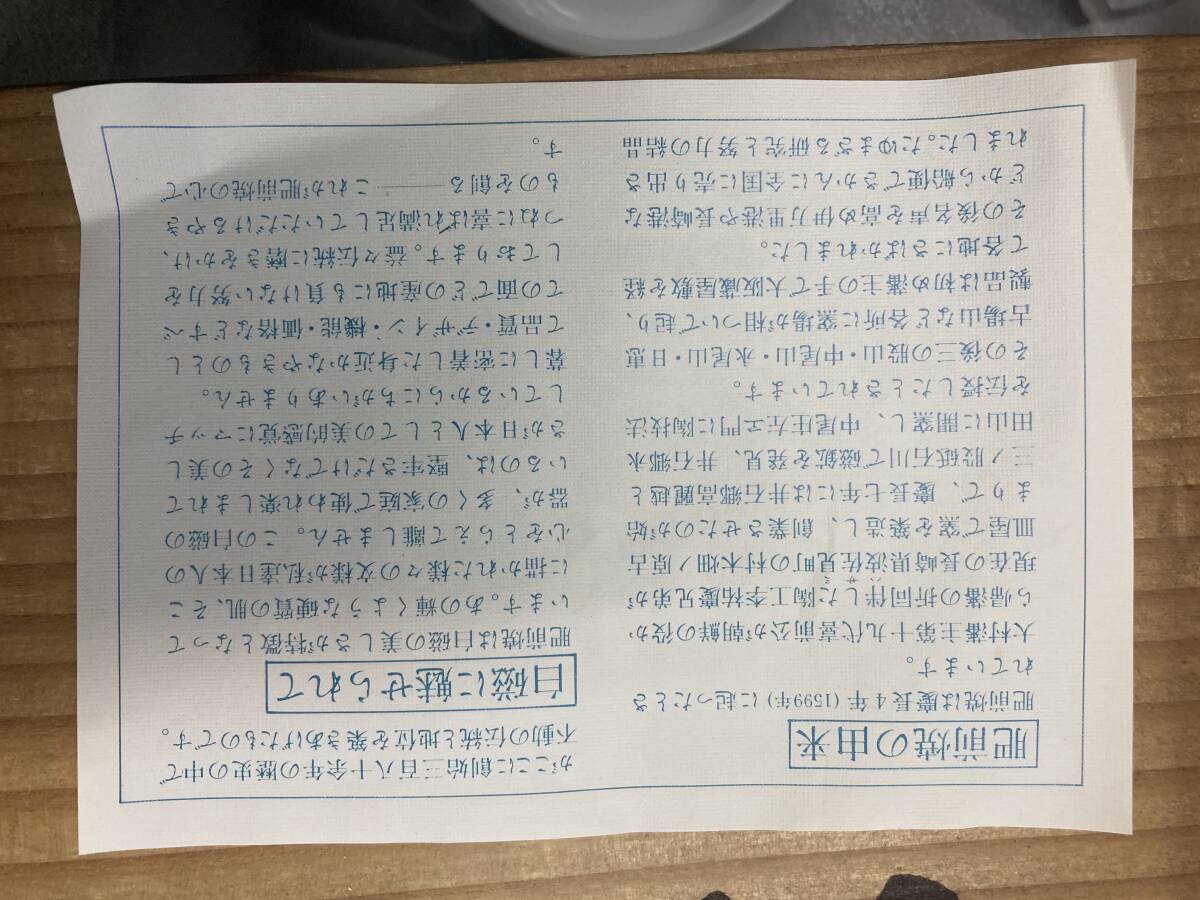 肥前焼の由来
肥前焼は慶長4年(1599年)に起ったとさ
れています。
大村藩主第十九代喜前公が朝鮮の役か
ら帰藩の折同伴した陶工李祐慶兄弟が
はさみ
現在の長崎県波佐見町の村木畑ノ原古
皿屋で窯を築造し、創業させたのが始
まりで、慶長七年には井石郷高麗越と
三ノ股砥石川で磁鉱を発見、井石郷永
田山に開窯し、中尾庄左ヱ門に陶技法
を伝授したとされています。
その後三の股山・中尾山・永尾山・日恵
古場山など各所に窯場が相ついで起り、
製品は初め藩主の手で大阪蔵屋敷を経
て各地にさばかれました。
その後名声を高め伊万里港や長崎港な
どから船便でさかんに全国に売り出さ
れました。たゆまざる研究と努力の結晶
がここに創始三百八十余年の歴史の中で
不動の伝統と地位を築きあげたものです。
白磁に魅せられて
肥前焼は白磁の美しさが特徴となって
います。あの輝くような硬質の肌、そこ
に描かれた様々の文様が私達日本人の
心をとらえて離しません。この白磁の
器が、多くの家庭で使われ楽しまれて
いるのは、堅牢さだけでなくその美し
さが日本人としての美的感覚にマッチ
しているからにちがいありません。
暮しに密着した身近かなやきものとし
て品質・デザイン・機能・価格などすべ
ての面でどの産地にも負けない努力を
しております。益々伝統に磨きをかけ、
つねに喜ばれ満足していただけるやき
ものを創る―――これが肥前焼の心で
す。